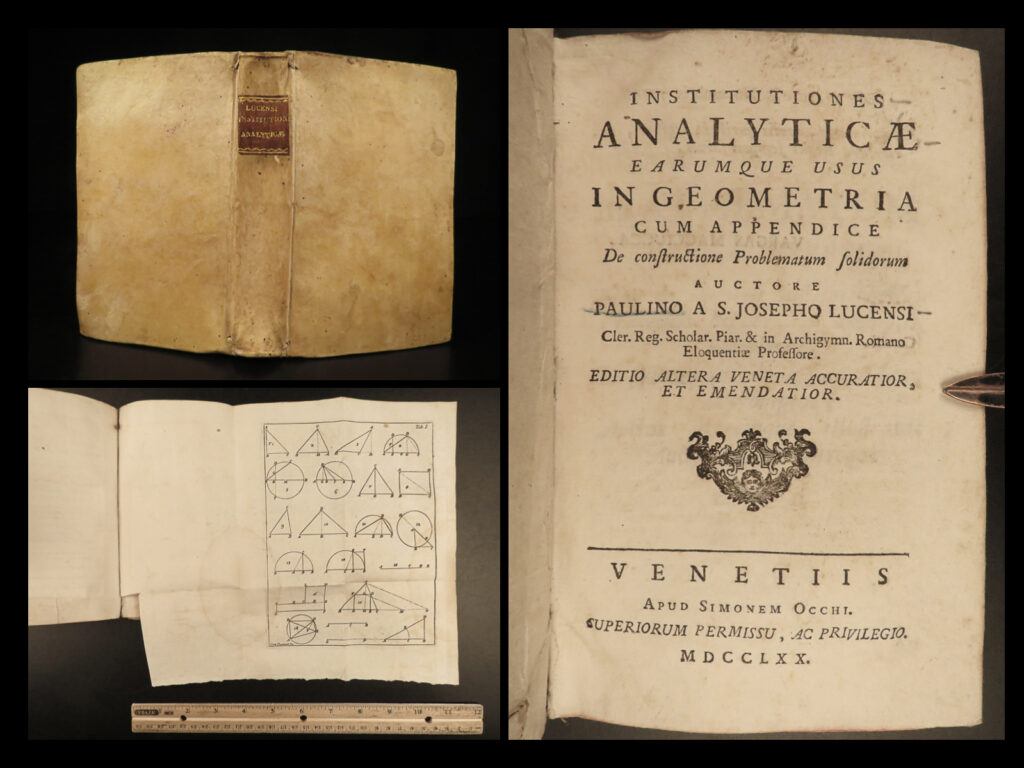 LUCENSI
INSTITUTION
ANALYTICÆ
INSTITUTIONES
ANALYTICÆ
EARUMQUE USUS
IN GEOMETRIA
CUM APPENDICE
De conſtructione Problematum ſolidorum
AUCTORE
PAULINO A S. JOSEPHO LUCENSI
Cler. Reg. Scholar. Piar. & in Archigymn. Romano
Eloquentiæ Profeſſore.
EDITIO ALTERA VENETA ACCURATIOR,
ET EMENDATIOR.
VENETIIS
APUD SIMONEM OCCHI.
SUPERIORUM PERMISSU, AC PRIVILEGIO.
MDCCLXX.
Tab. I.